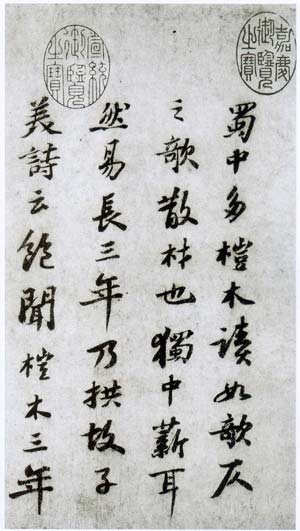 嘉慶御覽之寶
蜀中多榿木讀如欹仄
之欹散材也獨中薪耳
然易長三年乃拱故子
美詩云飽聞榿木三年
宣統御覽之寶